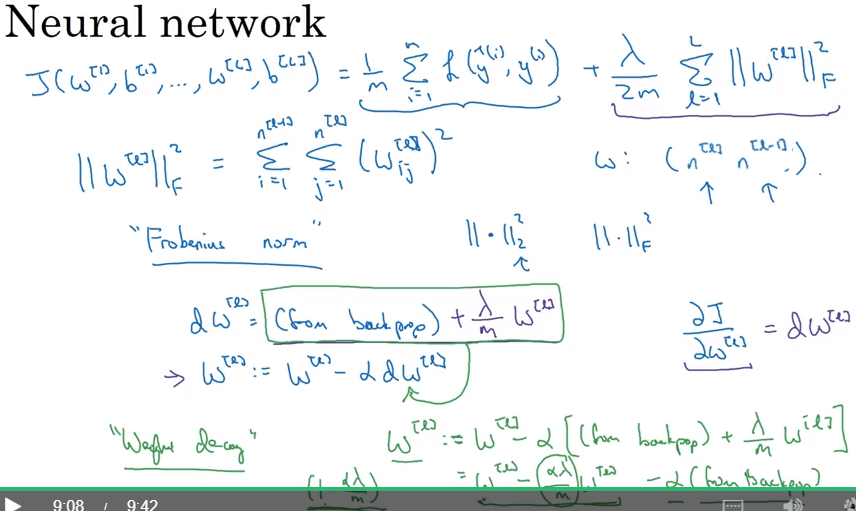 Neural network
J(w^[1], b^[1], ..., w^[L], b^[L]) = 1/m Σ_{i=1}^{m} L(ŷ^(i), y^(i)) + λ/2m Σ_{l=1}^{L} ||w^[l]||²_F
||w^[l]||²_F = Σ_{i=1}^{n^[l-1]} Σ_{j=1}^{n^[l]} (w_ij^[l])² w: (n^[l] n^[l-1]).
"Frobenius norm" ||·||²_2 ||·||²_F
dw^[l] = (from backprop) + λ/m w^[l] ∂J/∂w^[l] = dw^[l]
→ w^[l] := w^[l] - α dw^[l]
"Weight decay" w^[l] := w^[l] - α[(from backprop) + λ/m w^[l]]
(1-αλ/m) = w^[l] - αλ/m w^[l] - α(from backprop)
9:08 / 9:42